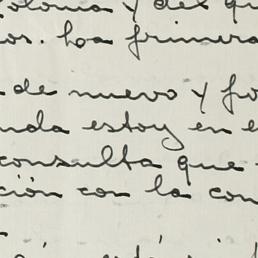 olonia y dex qu
os. Los primera
de nuevo y fo
nda estoy en e
consulta que
ción con la con